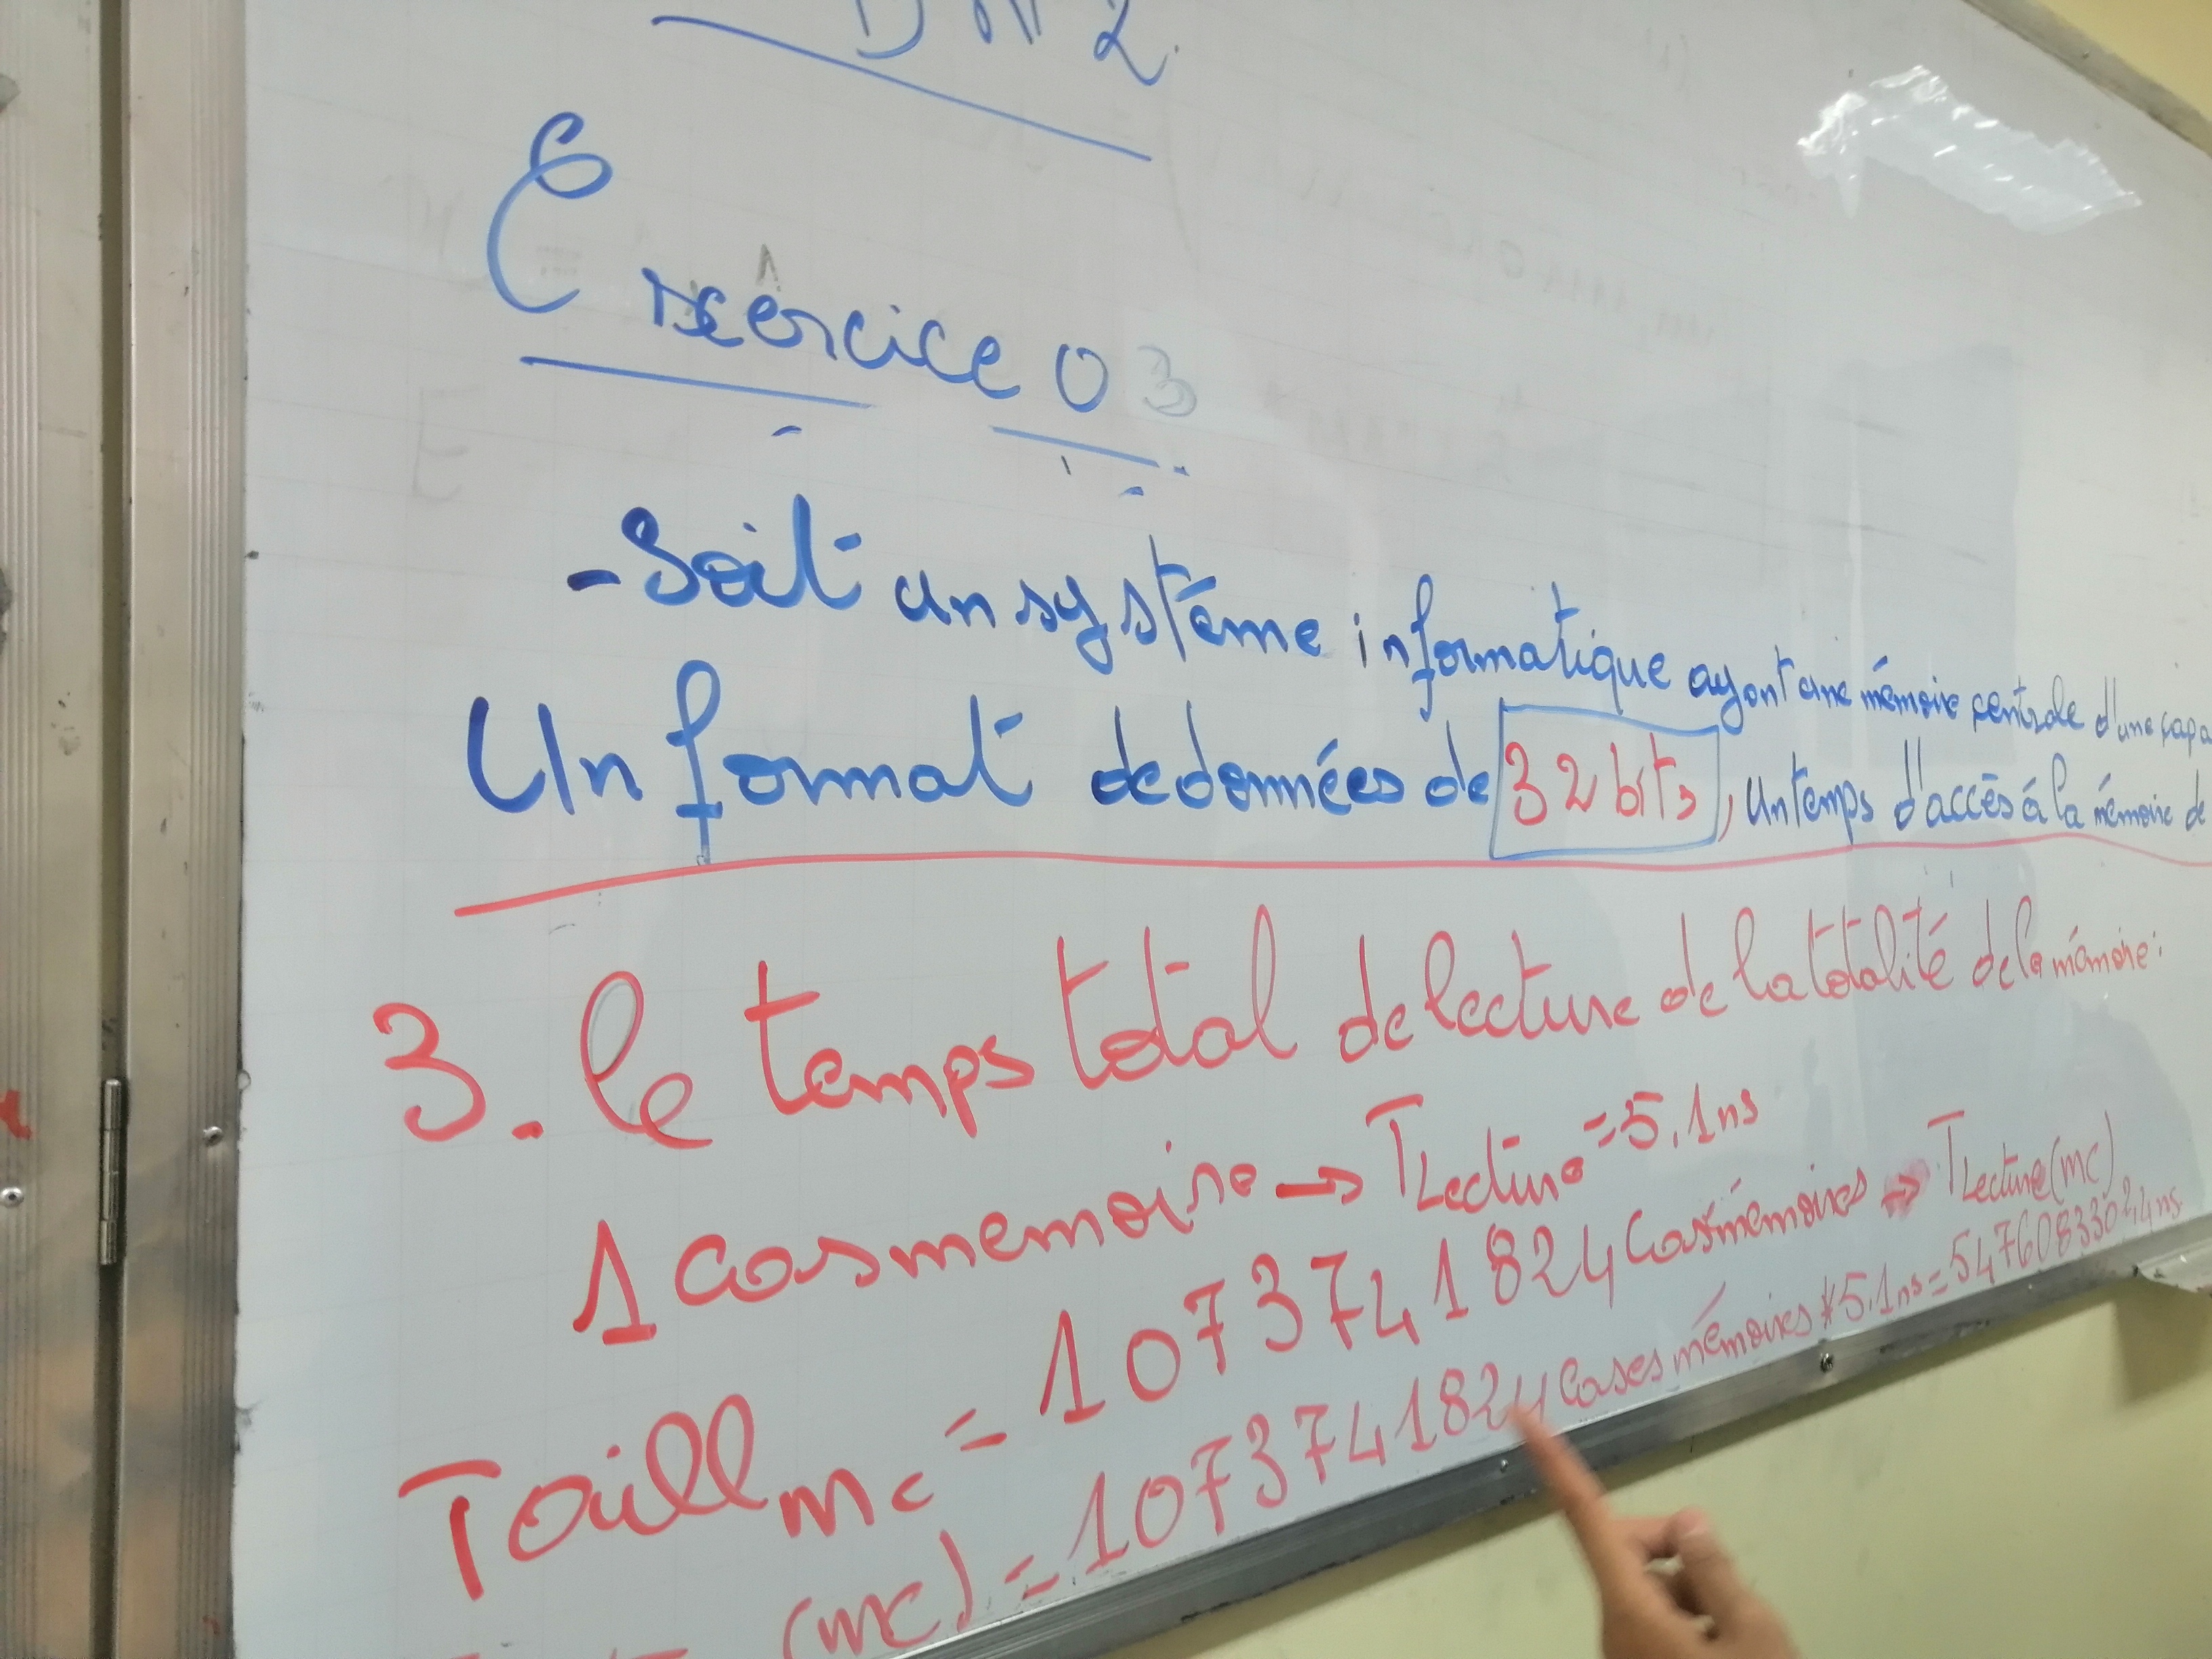 Exercice 03
- Soit un système informatique ayant une mémoire centrale d'une capa
Un format de données de 32 bits, un temps d'accès à la mémoire de
3. le temps total de lecture de la totalité de la mémoire:
1 cas memoire → TLecture = 5.1ns
Taill mc = 1073741824 Cas mémoires → TLecture(mc)
(mc) = 1073741824 Cases mémoires * 5.1ns = 5476083302,4ns